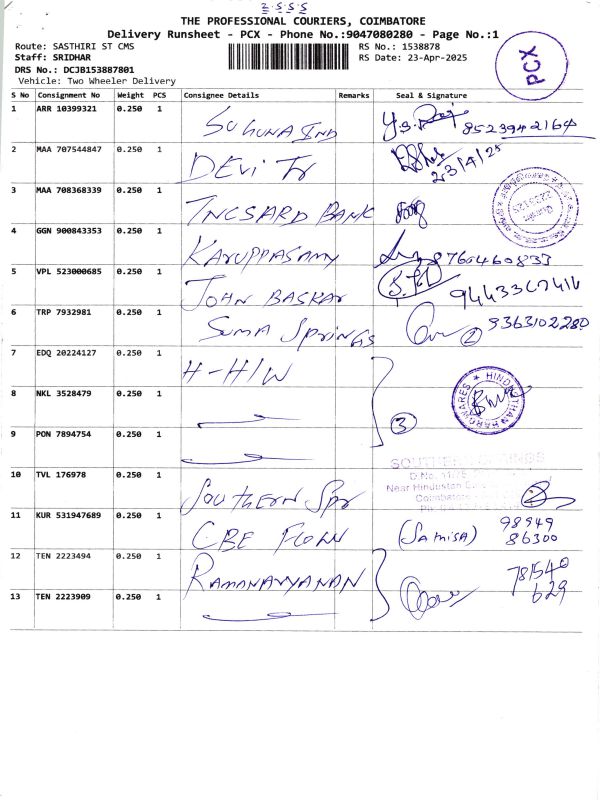 2.5.5.5
THE PROFESSIONAL COURIERS, COIMBATORE
Delivery Runsheet - PCX - Phone No.:9047080280 - Page No.:1
Route: SASTHIRI ST CMS
RS No.: 1538878
Staff: SRIDHAR
RS Date: 23-Apr-2025
PCX
DRS No.: DCJB153887801
Vehicle: Two Wheeler Delivery
S No Consignment No Weight PCS Consignee Details Remarks Seal & Signature
1 ARR 10399321 0.250 1 SUGUNA IND 8523942164
2 MAA 707544847 0.250 1 DEVI Tr 23/4/25
3 MAA 708368339 0.250 1 TNCSARD BANK
4 GGN 900843353 0.250 1 KARUPPASAMY 8760460833
5 VPL 523000685 0.250 1 JOHN BASKAR 9443367414
6 TRP 7932981 0.250 1 SUMA SPRINGS 2 9363102280
7 EDQ 20224127 0.250 1 H-H/W
8 NKL 3528479 0.250 1
3
HINDUSTHAN HARDWARES
9 PON 7894754 0.250 1
SOUTHERN SPRINGS
Near Hindustan
Coimbatore
10 TVL 176978 0.250 1 SOUTHERN Spr
11 KUR 531947689 0.250 1 CBE FLOW (Samisa) 98949
86300
12 TEN 2223494 0.250 1 RAMANARYANAN 781540
629
13 TEN 2223909 0.250 1